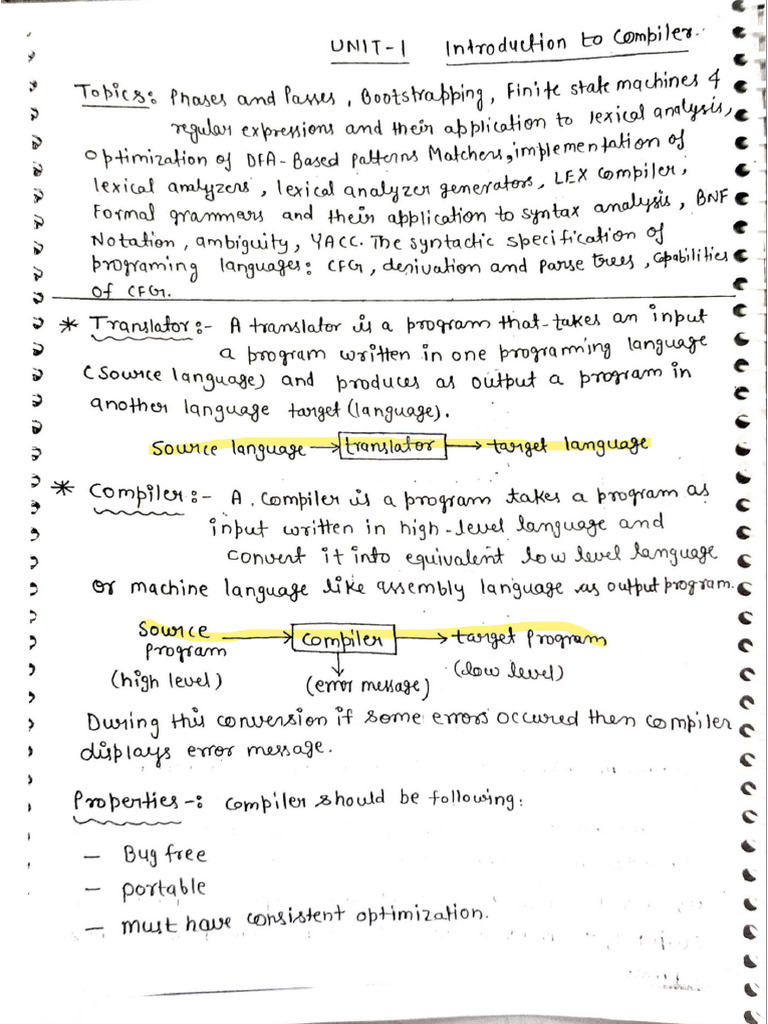 UNIT-1 Introduction to Compiler.
Topics: Phases and Passes, Bootstrapping, Finite state machines &
regular expressions and their application to lexical analysis,
Optimization of DFA-Based Patterns Matchers, implementation of
lexical analyzers, lexical analyzer generators, LEX compiler,
Formal grammers and their application to syntax analysis, BNF
Notation, ambiguity, YACC. The syntactic specification of
programing languages: CFG, derivation and Parse trees, Capabilities
of CFG.
* Translator:- A translator is a program that takes an input
a program written in one programing language
(Source language) and produces as output a program in
another language target (language).
Source language → translator → target language
* Compiler:- A compiler is a program takes a program as
input written in high-level language and
convert it into equivalent low level language
or machine language like assembly language as output program.
Source program → compiler → target program
(high level) (error message) (low level)
During this conversion if some errors occured then compiler
displays error message.
Properties-: Compiler should be following:
- Bug free
- portable
- must have consistent optimization.